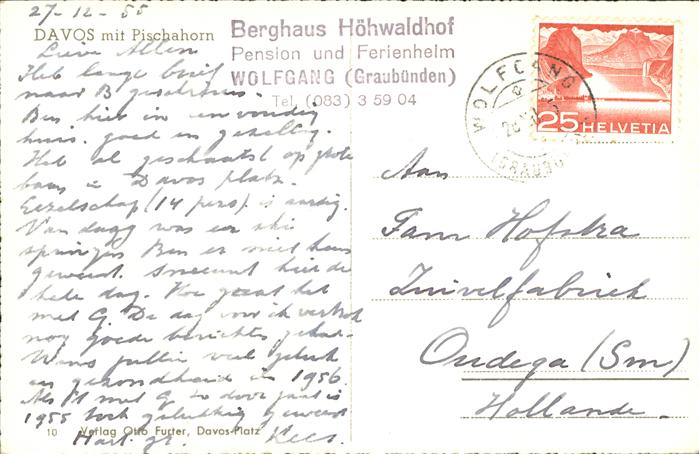 27-12-55
DAVOS mit Pischahorn
Berghaus Höhwaldhof
Pension und Ferienheim
WOLFGANG (Graubünden)
Tel. (083) 3 59 04
Lieve Allen
Heb lange brief
naar B geschreven.
Ben hier in eenvoudig
huis. goed en gezellig.
Heb al geschaatst op grote
baan in Davos platz.
Gezelschap (14 pers) is aardig.
Van dagg was er ski
springen Ben er niet heen
geweest. Sneeuwt hier de
hele dag. Hoe gaat het
met G De dag voor ik vertrok
nog goede berichten gehad.
Wens jullie veel geluk
en gezondheid in 1956
Als met G zo door gaat is
1955 toch gelukkig geweest
Hart. gr. Kees.
10 Verlag Otto Furter, Davos-Platz
WOLFGANG
(GRAUBÜ
25 HELVETIA
Aan
Fam Hofstra
Zuivelfabriek
Oudega (Sm)
Hollande.